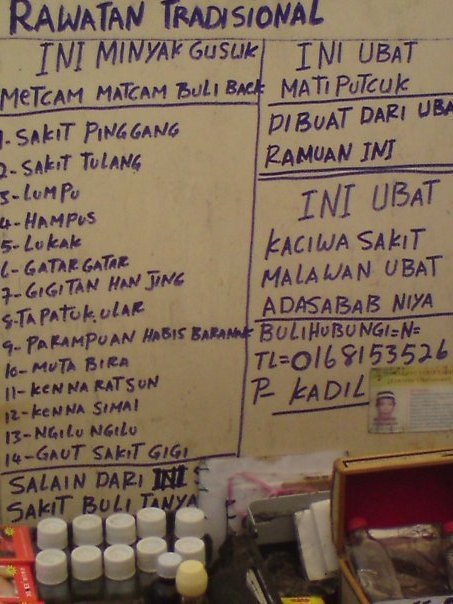 RAWATAN TRADISIONAL
INI MINYAK GUSUK
METCAM MATCAM BULI BACK
1-SAKIT PINGGANG
2-SAKIT TULANG
3-LUMPU
4-HAMPUS
5-LUKAK
6-GATAR GATAR
7-GIGITAN HAN JING
8-TAPATUK ULAR
9-PARAMPUAN HABIS BARANAK
10-MUTA BIRA
11-KENNA RATSUN
12-KENNA SIMAI
13-NGILU NGILU
14-GAUT SAKIT GIGI
SALAIN DARI INI
SAKIT BULI TANYA
INI UBAT
MATI PUTCUK
DIBUAT DARI UBA
RAMUAN INI
INI UBAT
KACIWA SAKIT
MALAWAN UBAT
ADASABAB NIYA
BULIHUBUNGI=N=
TL=0168153526
P- KADIL